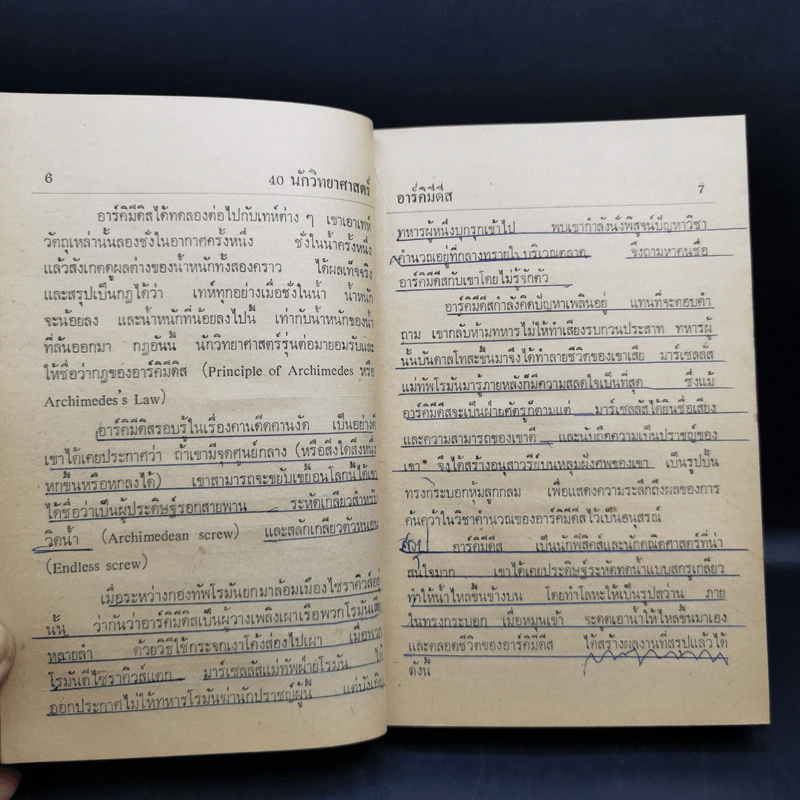 6
40 นักวิทยาศาสตร์
อาร์คิมีดิสได้ทดลองต่อไปกับเทห์ต่าง ๆ เขาเอาเทห์
วัตถุเหล่านั้นลองชั่งในอากาศครั้งหนึ่ง ชั่งในน้ำครั้งหนึ่ง
แล้วสังเกตดูผลต่างของน้ำหนักทั้งสองคราว ได้ผลเท็จจริง
และสรุปเป็นกฎได้ว่า เทห์ทุกอย่างเมื่อชั่งในน้ำ น้ำหนัก
จะน้อยลง และน้ำหนักที่น้อยลงไปนี้ เท่ากับน้ำหนักของน้ำ
ที่ล้นออกมา กฎอันนี้ นักวิทยาศาสตร์รุ่นต่อมายอมรับและ
ให้ชื่อว่ากฎของอาร์คิมีดิส (Principle of Archimedes หรือ
Archimedes's Law)
อาร์คิมีดิสรอบรู้ในเรื่องคานดีดคานงัด เป็นอย่างดี
เขาได้เคยประกาศว่า ถ้าเขามีจุดศูนย์กลาง (หรือสิ่งใดสิ่งหนึ่ง
หกขึ้นหรือหกลงได้) เขาสามารถจะขยับเขยื้อนโลกนี้ได้เขา
ได้ชื่อว่าเป็นผู้ประดิษฐ์รอกสายพาน ระหัดเกลียวสำหรับ
วิดน้ำ (Archimedean screw) และสลักเกลียวตัวหนอน
(Endless screw)
เมื่อระหว่างกองทัพโรมันยกมาล้อมเมืองไซราคิวส์อยู่
นั้น ว่ากันว่าอาร์คิมีดิสเป็นผู้วางเพลิงเผาเรือพวกโรมันเสีย
หลายลำ ด้วยวิธีใช้กระจกเงาโค้งส่องไปเผา เมื่อพวก
โรมันตีไซราคิวส์แตก มาร์เซลลัสแม่ทัพฝ่ายโรมัน ได้
ออกประกาศไม่ให้ทหารโรมันฆ่านักปราชญ์ผู้นี้ แต่บังเอิญ
อาร์คิมีดีส
7
ทหารผู้หนึ่งบุกรุกเข้าไป พบเขากำลังนั่งพิสูจน์ปัญหาวิชา
คำนวณอยู่ที่กลางทรายใน บริเวณตลาด จึงถามหาคนชื่อ
อาร์คิมีดีสกับเขาโดยไม่รู้จักตัว
อาร์คิมีดีสกำลังคิดปัญหาเพลินอยู่ แทนที่จะตอบคำ
ถาม เขากลับห้ามทหารไม่ให้ทำเสียงรบกวนประสาท ทหารผู้
นั้นบันดาลโทสะขึ้นมาจึงได้ทำลายชีวิตของเขาเสีย มาร์เซลลัส
แม่ทัพโรมันมารู้ภายหลังก็มีความสลดใจเป็นที่สุด ซึ่งแม้
อาร์คิมีดีสจะเป็นฝ่ายศัตรูก็ตามแต่ มาร์เซลลัสได้ยินชื่อเสียง
และความสามารถของเขาดี และนับถือความเป็นปราชญ์ของ
เขา จึงได้สร้างอนุสาวรีย์บนหลุมฝังศพของเขา เป็นรูปปั้น
ทรงกระบอกหุ้มลูกกลม เพื่อแสดงความระลึกถึงผลของการ
ค้นคว้าในวิชาคำนวณของอาร์คิมีดีสไว้เป็นอนุสรณ์
อาร์คิมีดีส เป็นนักฟิสิคส์และนักคณิตศาสตร์ที่น่า
สนใจมาก เขาได้เคยประดิษฐ์ระหัดทดน้ำแบบสกรูเกลียว
ทำให้น้ำไหลขึ้นข้างบน โดยทำโลหะให้เป็นรูปสว่าน ภาย
ในทรงกระบอก เมื่อหมุนเข้า จะดูดเอาน้ำให้ไหลขึ้นมาเอง
และตลอดชีวิตของอาร์คิมีดีส ได้สร้างผลงานที่สรุปแล้วได้
ดังนี้